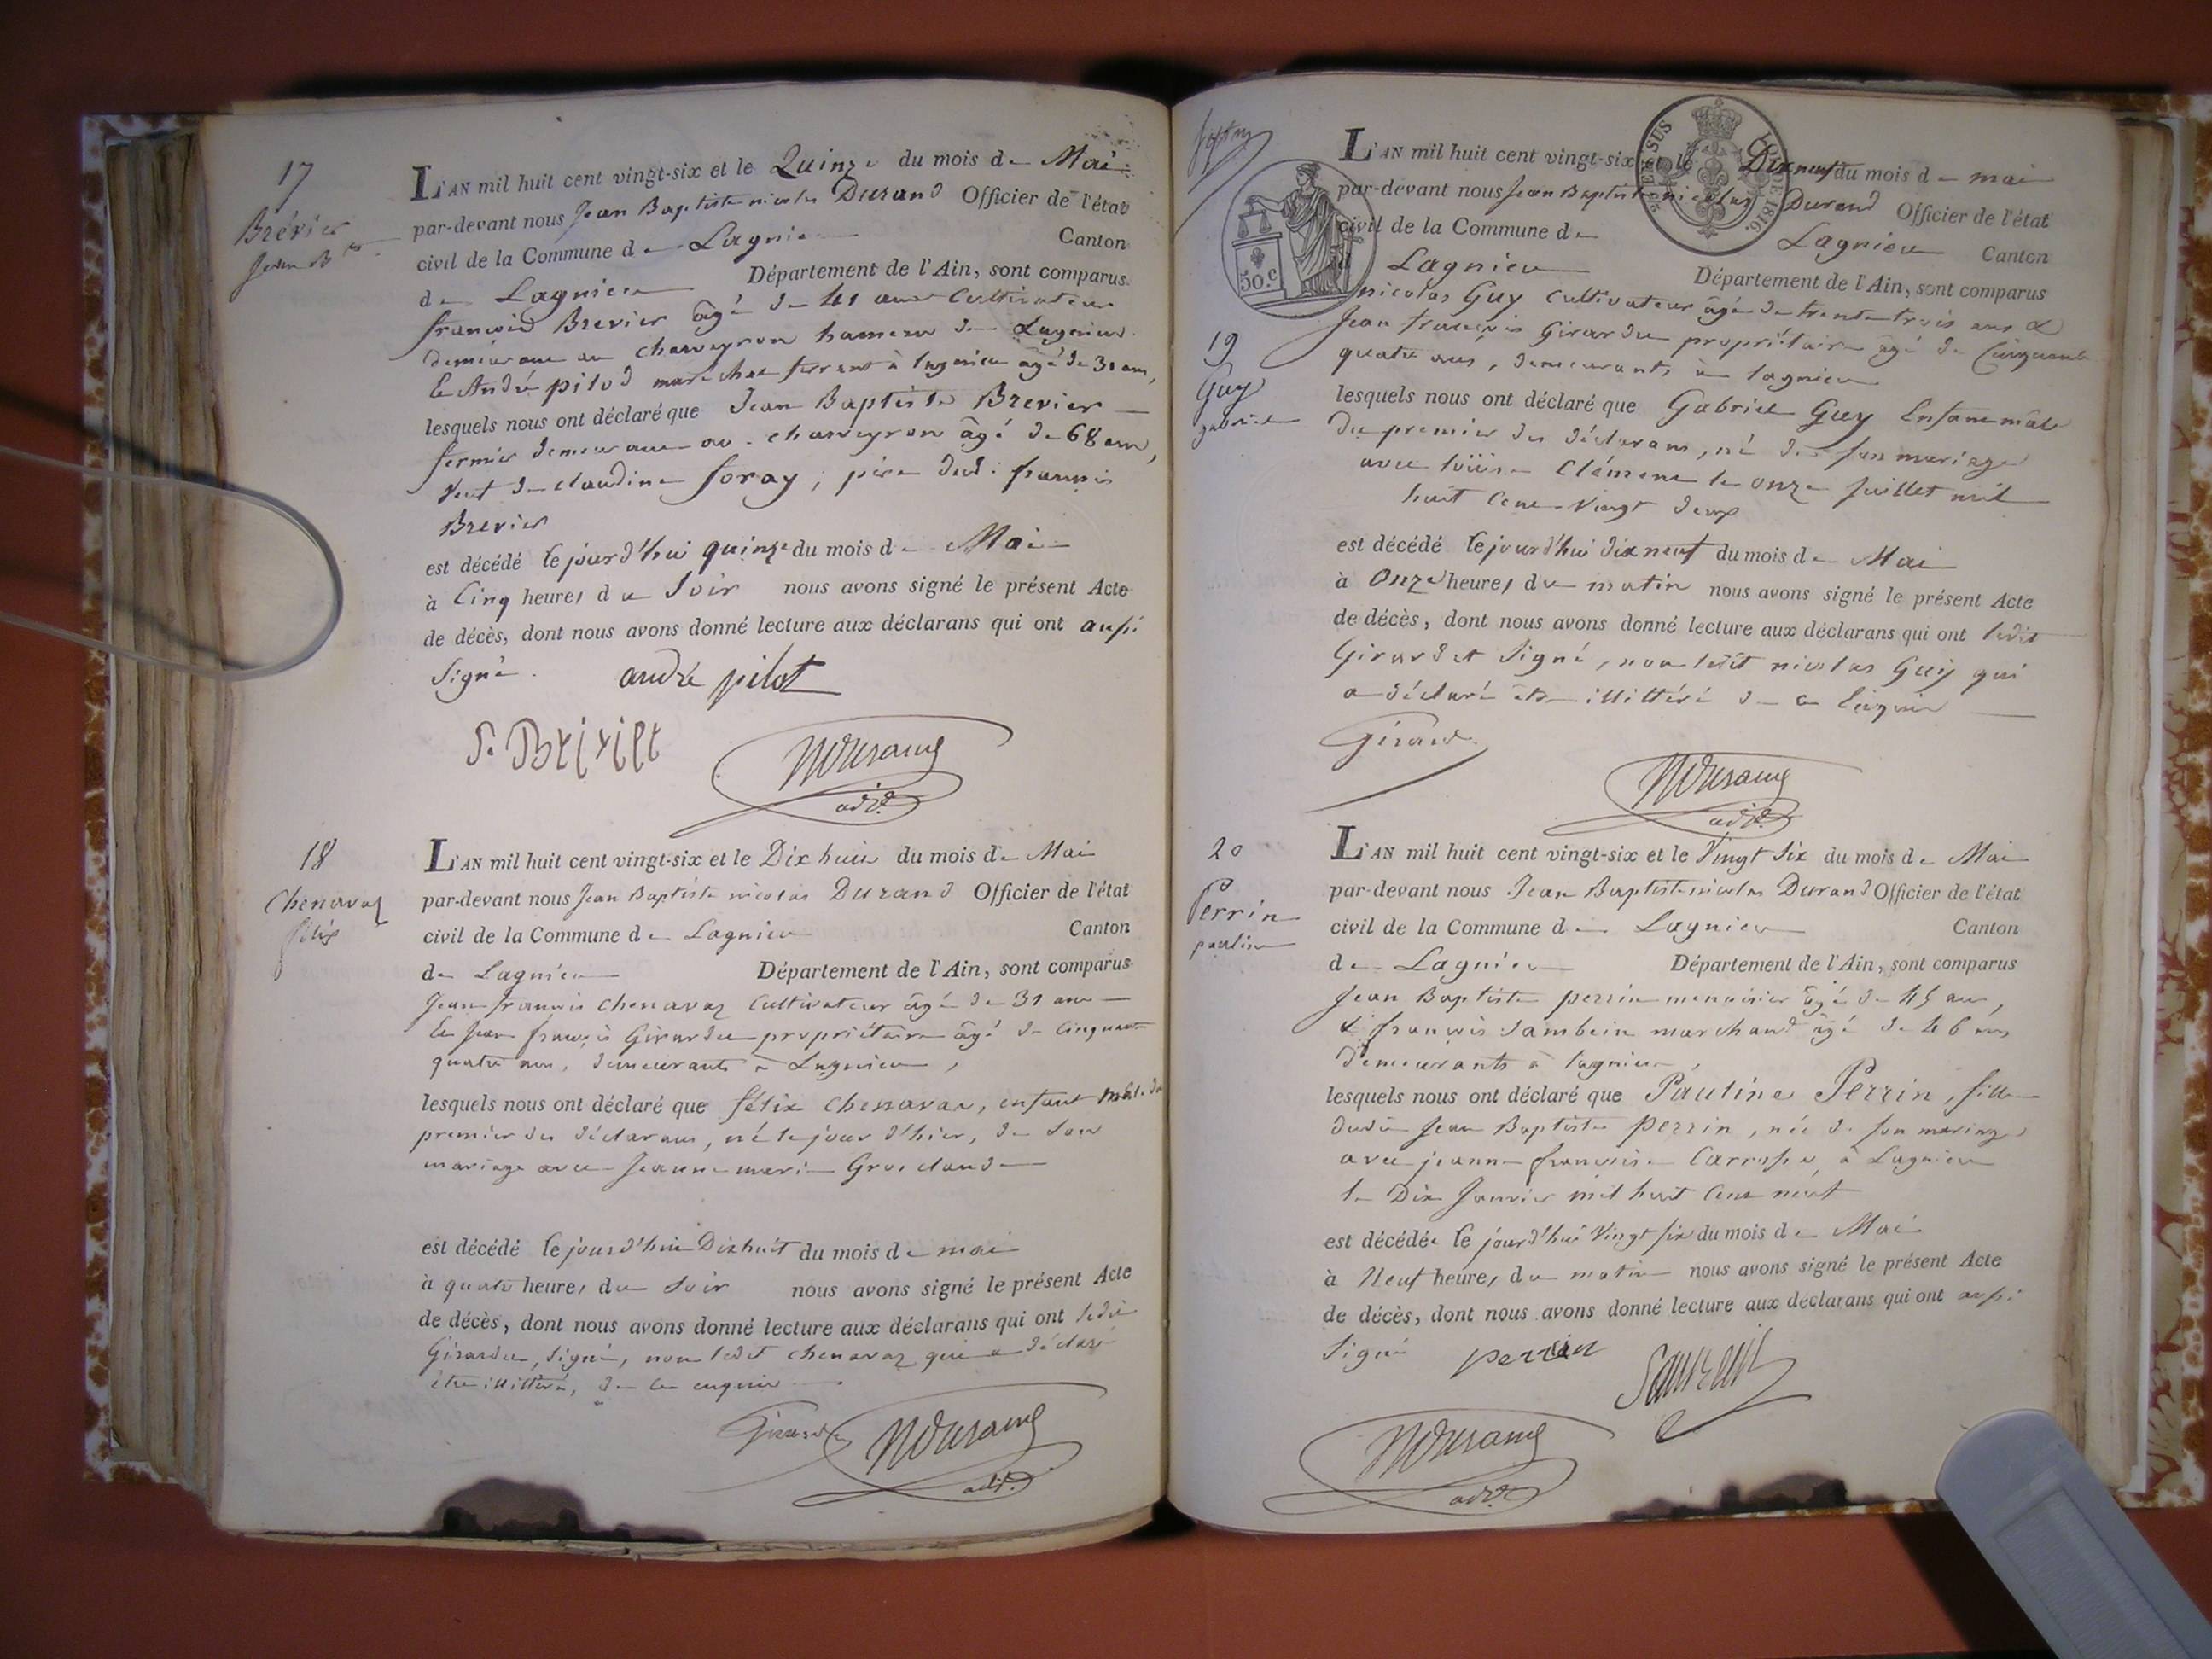 17
Brévier
Jean Bte
L'AN mil huit cent vingt-six et le Quinze du mois de Mai
par-devant nous Jean Baptiste nicolas Durand Officier de l'état
civil de la Commune de Lagnieu Canton
de Lagnieu Département de l'Ain, sont comparus
françois Brevier âgé de 41 ans Cultivateur
demeurant au charveyron hameau de Lagnieu
Et André pilod maréchal ferrant à lagnieu âgé de 31 ans,
lesquels nous ont déclaré que Jean Baptiste Brevier
fermier demeurant au charveyron âgé de 68 ans,
veuf de claudine foray, père dud. françois
Brevier
est décédé le jourd'hui quinze du mois de Mai
à Cinq heures du Soir nous avons signé le présent Acte
de décès, dont nous avons donné lecture aux déclarans qui ont aussi
signé.
andré pilot
Ndurand
adjt
18
Chenavaz
félix
L'AN mil huit cent vingt-six et le Dix huit du mois de Mai
par-devant nous Jean Baptiste nicolas Durand Officier de l'état
civil de la Commune de Lagnieu Canton
de Lagnieu Département de l'Ain, sont comparus
Jean françois Chenavaz Cultivateur âgé de 31 ans
Et Jean françois Girardet propriétaire âgé de Cinquante
quatre ans, demeurants à Lagnieu,
lesquels nous ont déclaré que félix Chenavaz, enfant mâle du
premier des déclarans, né le jour d'hier, de son
mariage avec Jeanne marie Grosclaude
est décédé le jourd'hui Dixhuit du mois de mai
à quatre heures du Soir nous avons signé le présent Acte
de décès, dont nous avons donné lecture aux déclarans qui ont ledit
Girardet, signé, non ledit chenavaz qui a déclaré
être illittéré, de ce enquis
Girard
Ndurand
adjt
L'AN mil huit cent vingt-six et le Dix neuf du mois de mai
par-devant nous Jean Baptiste nicolas Durand Officier de l'état
civil de la Commune de Lagnieu Canton
de Lagnieu Département de l'Ain, sont comparus
50.c
1816.
19
Guy
gabriel
nicolas Guy Cultivateur âgé de trente trois ans &
Jean françois Girardet propriétaire âgé de Cinquante
quatre ans, demeurants à lagnieu
lesquels nous ont déclaré que Gabriel Guy Enfant mâle
du premier des déclarans, né de son mariage
avec louise Clément le onze Juillet mil
huit Cent Vingt deux
est décédé le jourd'hui dix neuf du mois de Mai
à Onze heures du matin nous avons signé le présent Acte
de décès, dont nous avons donné lecture aux déclarans qui ont ledit
Girardet Signé, non ledit nicolas Guy qui
a déclaré être illittéré de ce Enquis
Girard
Ndurand
adjt
20
Perrin
pauline
L'AN mil huit cent vingt-six et le Vingt Six du mois de Mai
par-devant nous Jean Baptiste nicolas Durand Officier de l'état
civil de la Commune de Lagnieu Canton
de Lagnieu Département de l'Ain, sont comparus
Jean Baptiste perrin menuisier âgé de 45 ans,
& françois Sambein marchand âgé de 46 ans
demeurants à lagnieu,
lesquels nous ont déclaré que Pauline Perrin, fille
dudit Jean Baptiste Perrin, née de son mariage
avec jeanne françoise Carrosse, à Lagnieu
le Dix Janvier mil huit Cent neuf
est décédée le jourd'hui Vingt six du mois de Mai
à Neuf heures du matin nous avons signé le présent Acte
de décès, dont nous avons donné lecture aux déclarans qui ont aussi
Signé
perrin
Ndurand
adjt